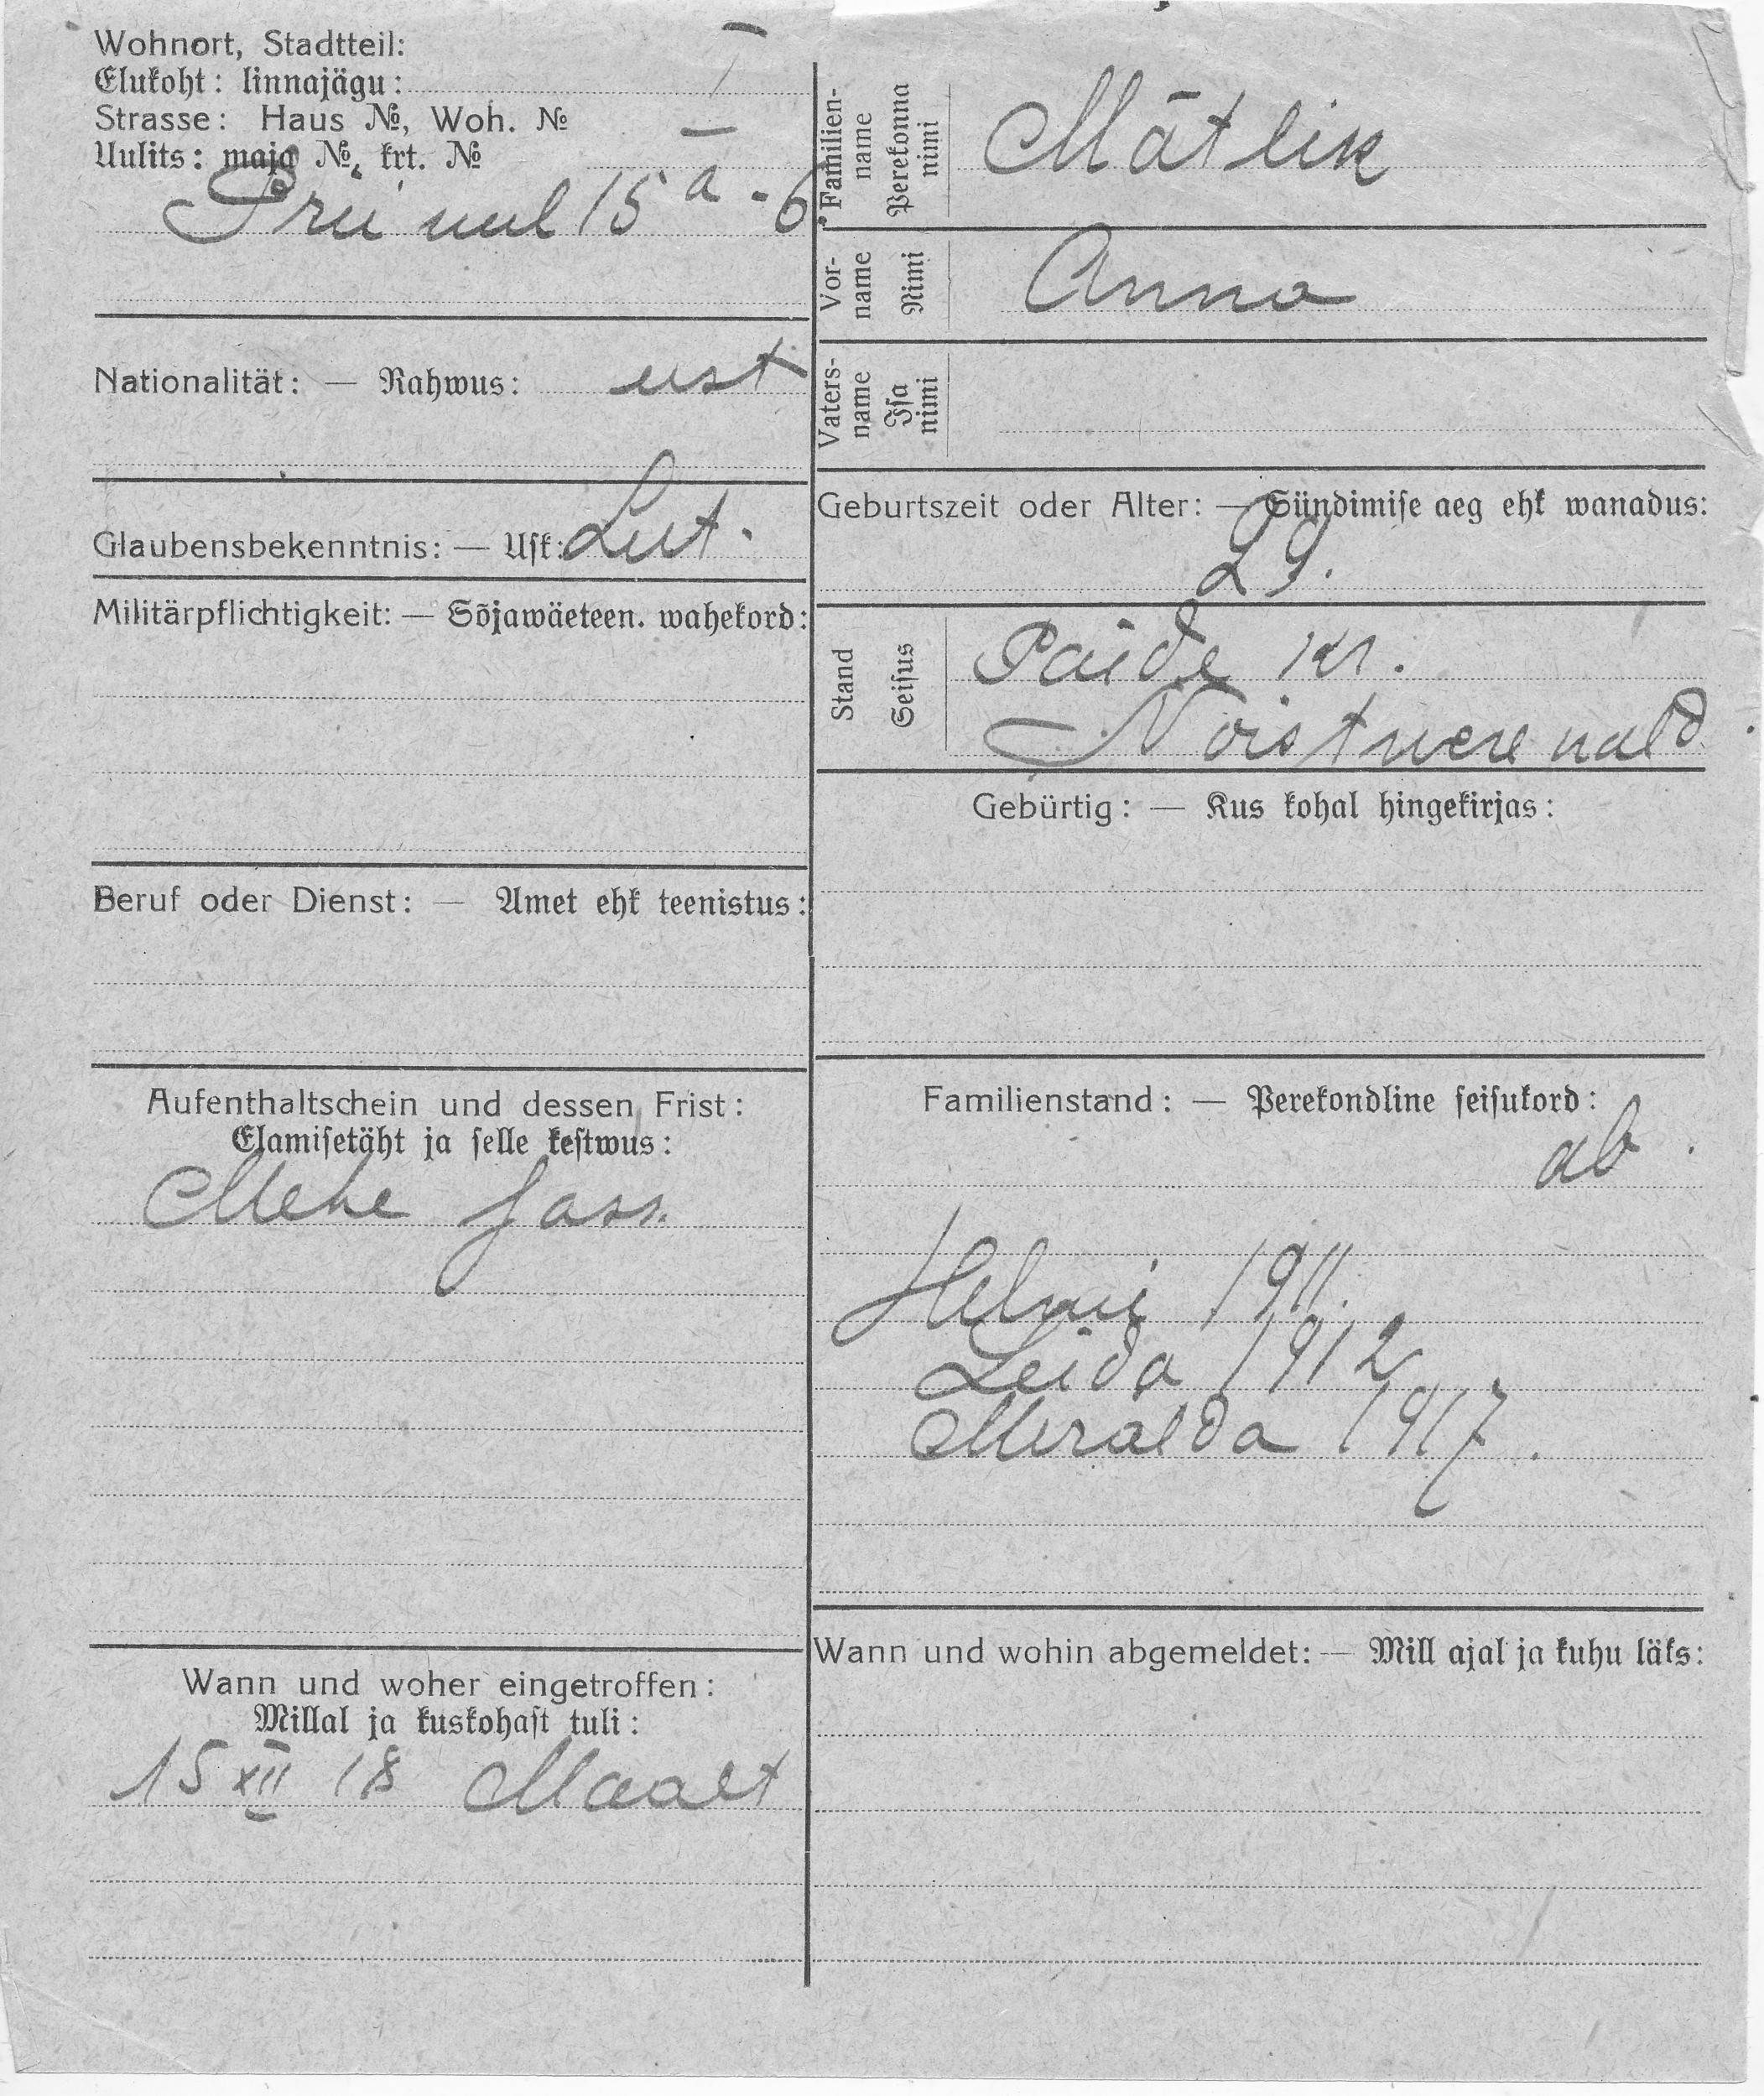 Wohnort, Stadtteil:
Elukoht: linnajägu: I
Strasse: Haus №, Woh. №
Uulits: maja №, krt. №
Prii uul 15 a - 6.
Nationalität: — Rahwus: eest
Glaubensbekenntnis: — Usk: Lut.
Militärpflichtigkeit: — Sõjawäeteen. wahekord:
Beruf oder Dienst: — Amet ehk teenistus:
Aufenthaltschein und dessen Frist:
Elamisetäht ja selle kestwus:
Mehe pass.
Wann und woher eingetroffen:
Millal ja kuskohast tuli:
15 XII 18 Maalt
Familien-
name
Perekonna
nimi
Mätlik
Vor-
name
Nimi
Anna
Vaters-
name
Isa
nimi
Geburtszeit oder Alter: — Sündimise aeg ehk wanadus:
29.
Stand
Seisus
Paide kr.
Võistwere wald.
Gebürtig: — Kus kohal hingekirjas:
Familienstand: — Perekondline seisukord:
ab.
Helmi 1911.
Leida 1912
Meralda 1917.
Wann und wohin abgemeldet: — Mill ajal ja kuhu läks: